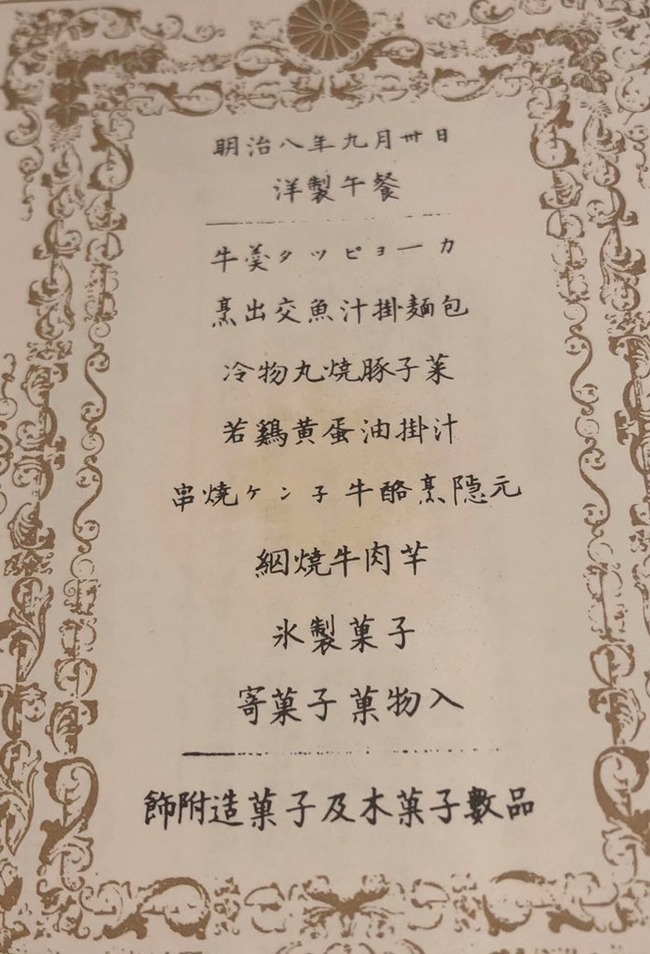 明治八年九月卅日
洋製午餐
牛羹タッピョーカ
烹出交魚汁掛麺包
冷物丸焼豚子菜
若鷄黄蛋油掛汁
串焼ケン子牛酪烹隠元
網焼牛肉芋
氷製菓子
寄菓子菓物入
飾附造菓子及木菓子數品